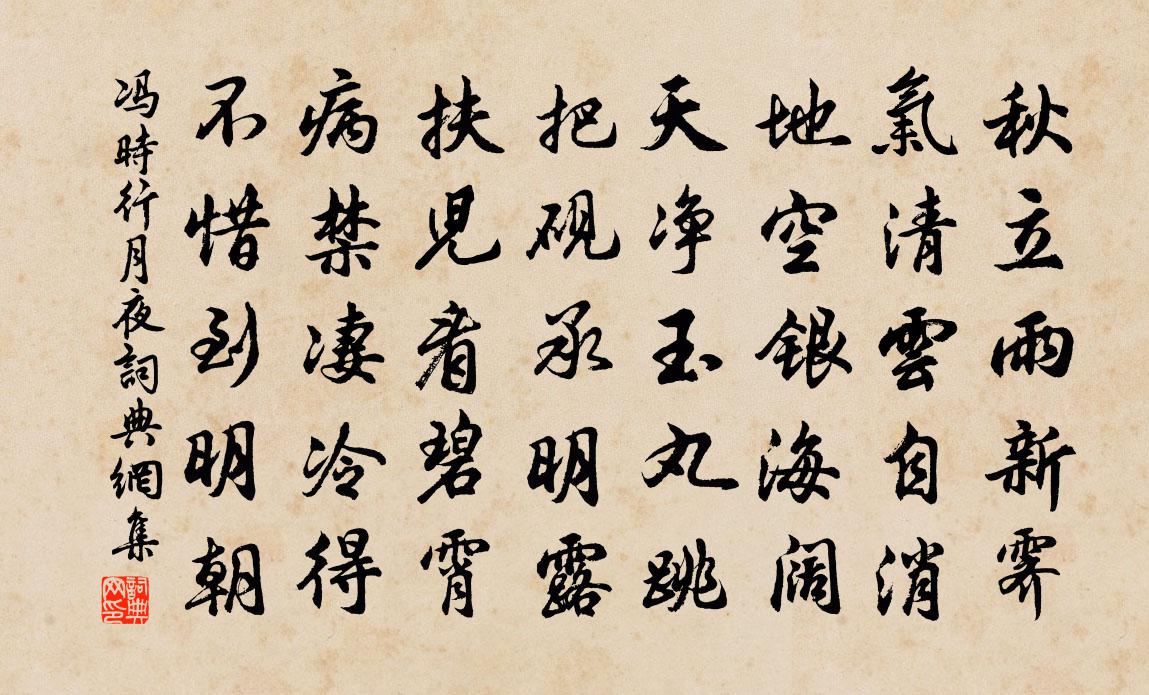 秋立雨新霽
氣清雲自消
地空銀海闊
天净玉丸跳
把硯承明露
扶児看碧霄
病禁凄冷得
不惜到明朝
冯時行月夜詞典網集
詞典網印